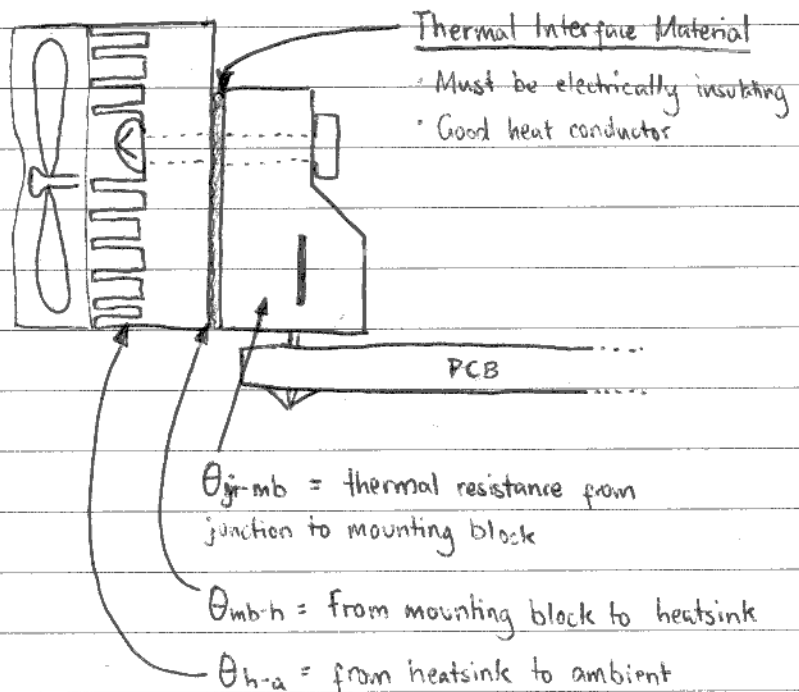 Thermal Interface Material
· Must be electrically insulating
· Good heat conductor
PCB
θjr-mb = thermal resistance from
junction to mounting block
θmb-h = from mounting block to heatsink
θh-a = from heatsink to ambient